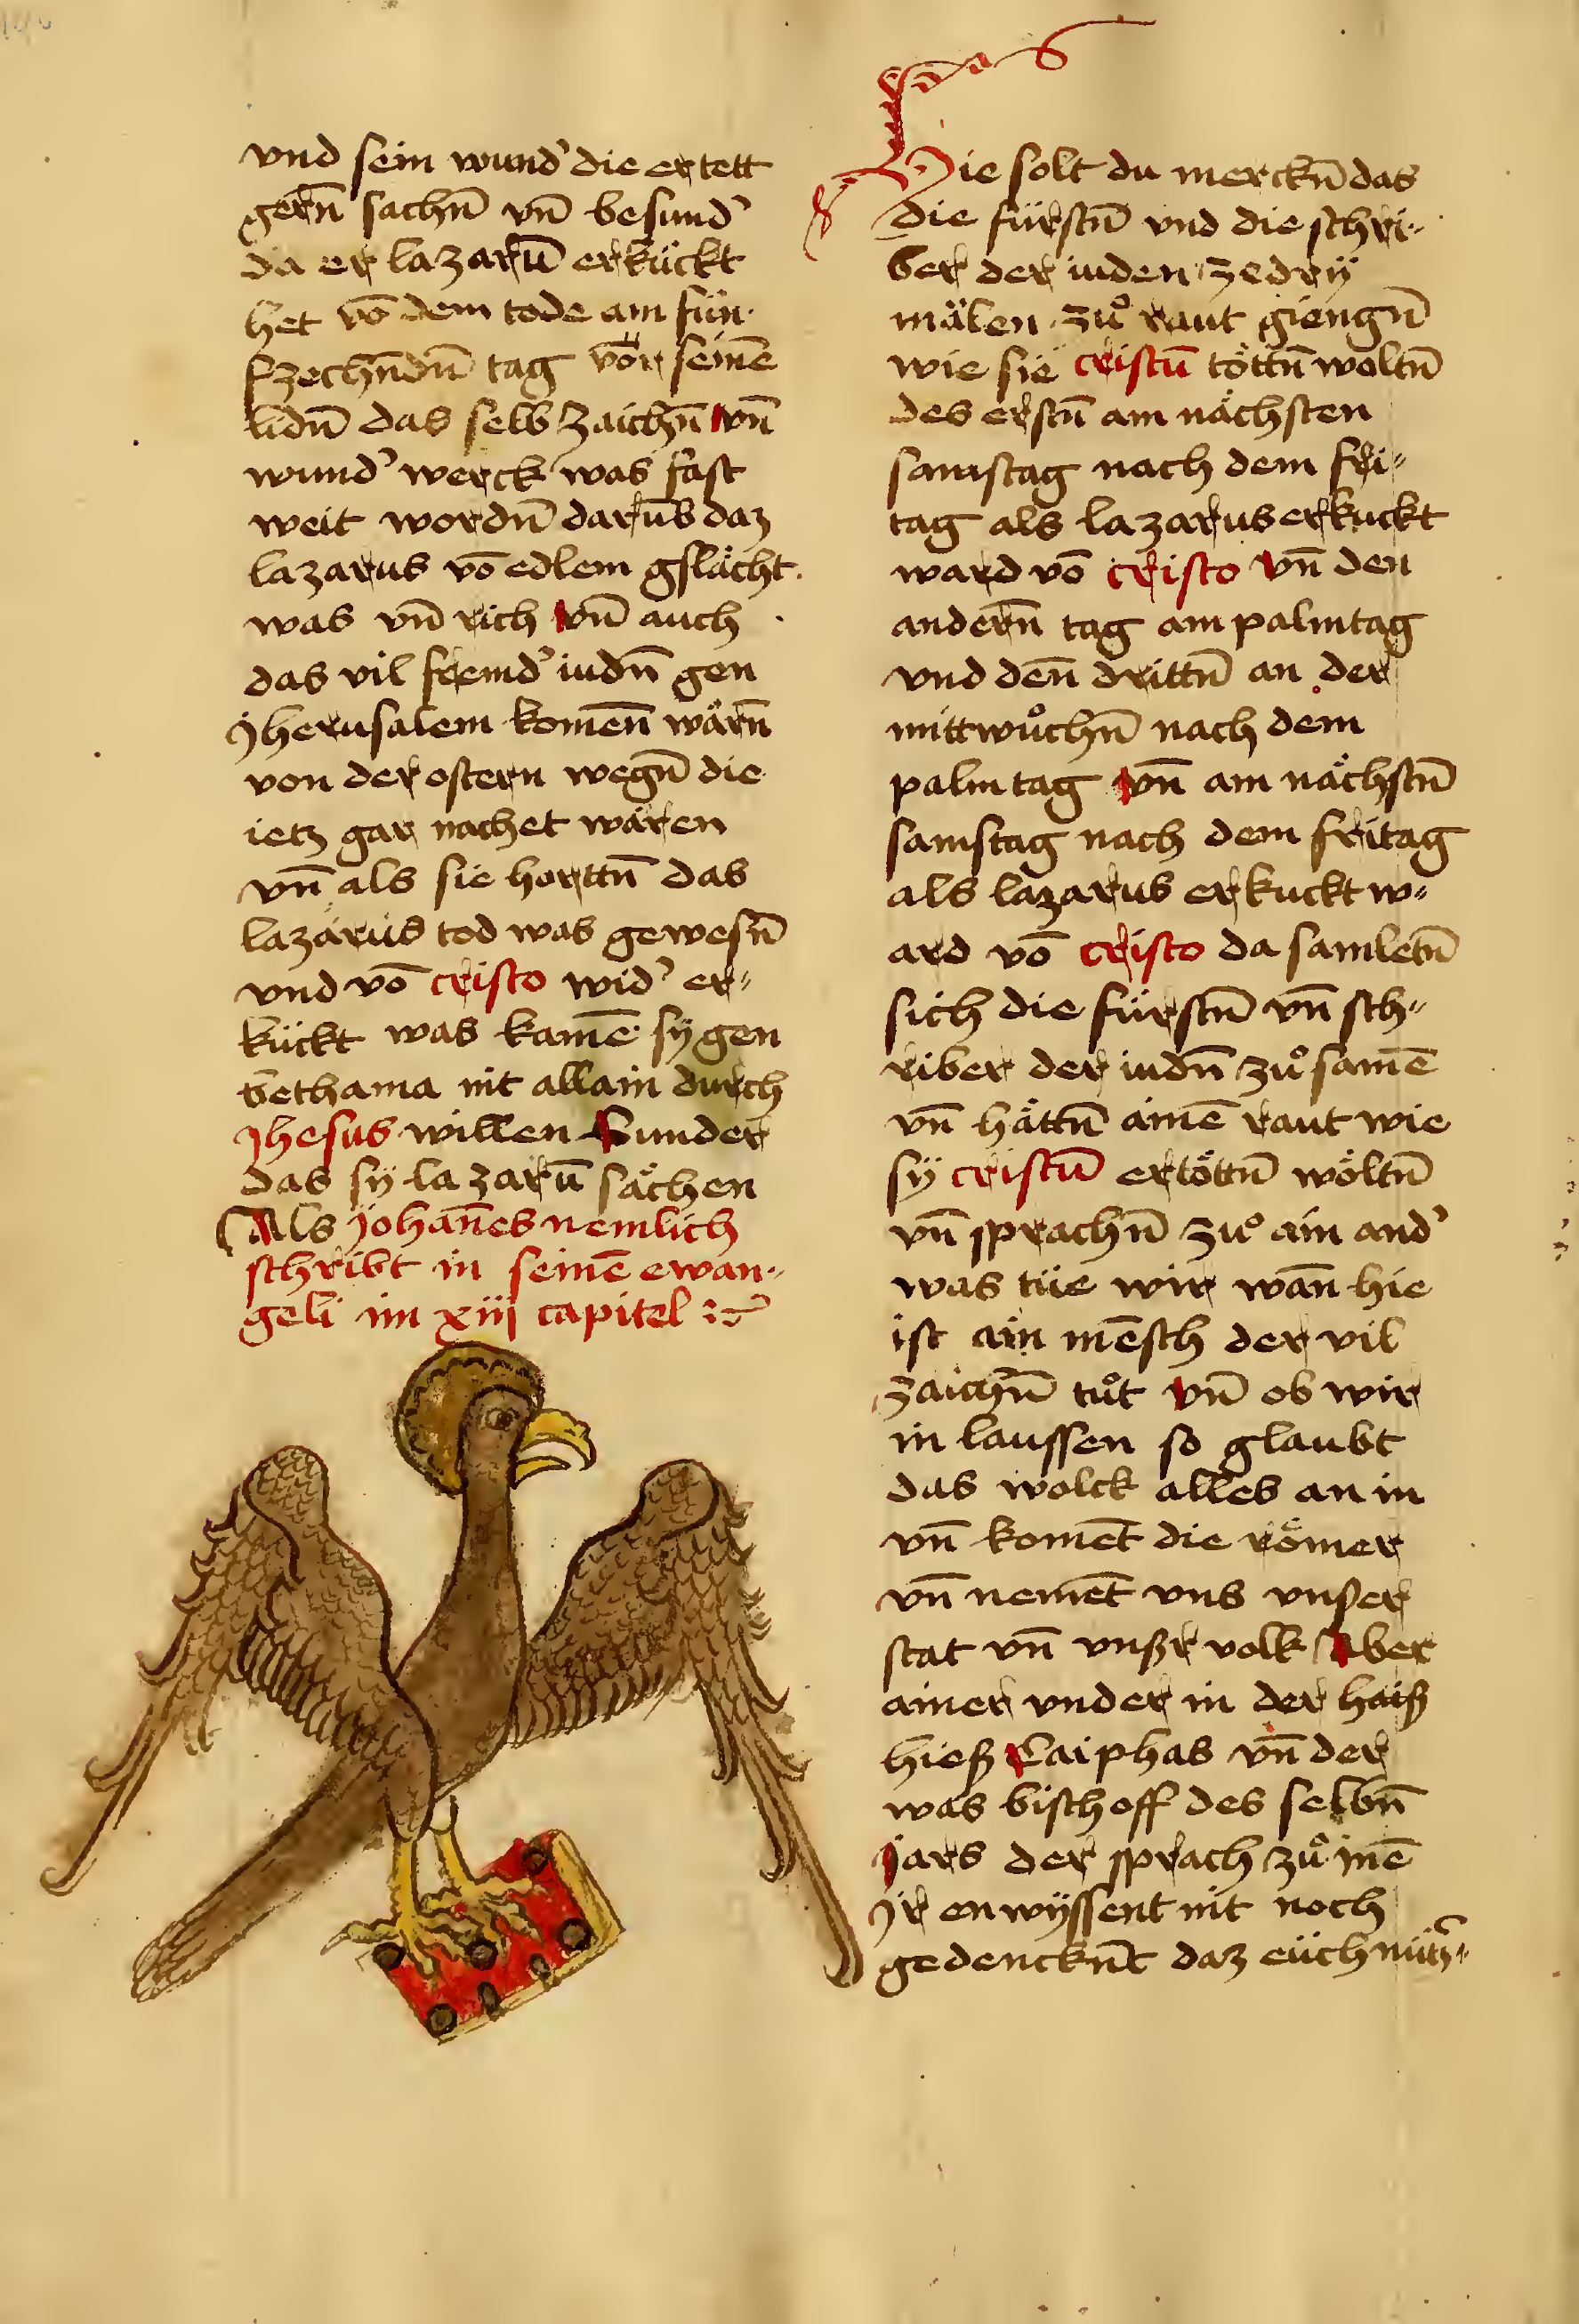 vnd sein wund’ die er tett
gern̄ sachn̄ vn̄ besund’
da er lazarū erkückt
het vō dem tode am fün-
fzechn̄dn̄ tag vör seinē
lidn̄ das selb zaichn̄ vn̄
wund’ werck was fast
weit wordn̄ darūb daz
lazarus vō edlem gslächt
was vn̄ rich vn̄ auch
das vil fremd’ iudn̄ gen
jherusalem komen̄ wärn̄
von der ostern wegn̄ die
ietz gar nachet wären
vn̄ als sie horttn̄ das
lazarus tod was gewesn̄
vnd vō cristo wid’ er-
kückt was kamē sÿ gen
bethania nit allain durch
jhesus willen Sunder
das sÿ lazarū sächen
Als johan̄es nemlich
schribt in seinē ewan-
geli im xiij capitel
Hie solt du merckn̄ das
die fürstn̄ vnd die schri-
ber der iuden ze drÿ
mälen zů raut giengn̄
wie sie cristū töttn̄ woltn̄
des erstn̄ am nächsten
samstag nach dem fri-
tag als lazarus erkuckt
ward vō cristo vn̄ den
andern̄ tag am palmtag
vnd den̄ drittn̄ an der
mittwůchn̄ nach dem
palmtag vn̄ am nächstn̄
samstag nach dem fritag
als lazarus erkuckt w-
ard vō cristo da samletn̄
sich die fürstn̄ vn̄ sch-
riber der iudn̄ zůsamē
vn̄ hättn̄ ainē raut wie
sÿ cristū ertöttn̄ wöltn̄
vn̄ sprachn̄ zů ain and’
was tüe wir wan̄ hie
ist ain mēsch der vil
zaichn̄ tůt vn̄ ob wir
in laussen so glaubt
das wolck alles an in
vn̄ komēt die römer
vn̄ nemēt vns vnser
stat vn̄ vnßr volk Aber
ainer vnder in der haiß
hieß Caiphas vn̄ der
was bischoff des selbn̄
jars der sprach zů inē
Jr enwÿssent nit noch
gedencknt̄ daz eüch nütz-